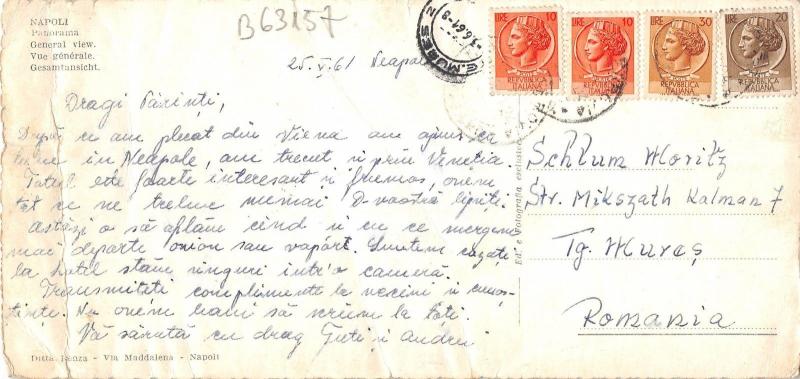 NAPOLI
Panorama
General view.
Vue générale.
Gesamtansicht.
B63157
25.V.61 Neapole
Dragi Părinți,
După ce am plecat din Viena am ajuns cu
bine in Neapole, am trecut și prin Veneția.
Totul este foarte interesant și frumos, avem
tot ce ne trebue numai Dvoastră lipsiți.
Astăzi o să aflăm cind și cu ce mergem
mai departe avion sau vapor. Suntem cazați
la hotel stăm singuri intr'o cameră.
Transmiteți complimente la vecini și cunoș-
tințe. Nu avem bani să scriem la toți.
Vă sărută cu drag și Andrei
Ditta Renza - Via Maddalena - Napoli
Ed. e Fotografia esclusiva
LIRE 10
REPVBBLICA
ITALIANA
LIRE 10
REPVBBLICA
ITALIANA
LIRE 30
REPVBBLICA
ITALIANA
LIRE 20
REPVBBLICA
ITALIANA
Schlum Moritz
Str. Mikszath Kalman 7
Tg. Mureș
Romania